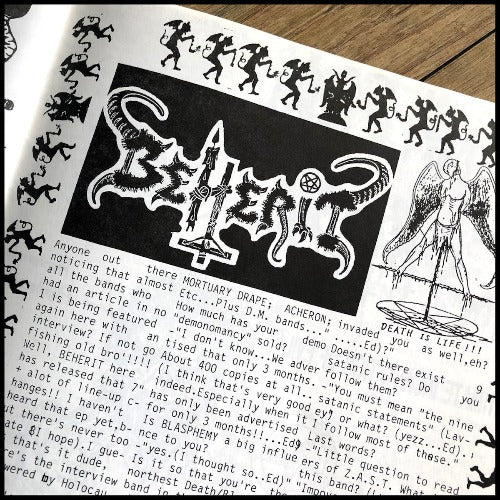 BEHERIT
DEATH IS LIFE!!!
Anyone out there
noticing that almost
all the bands who
had an article in no
I is being featured
again here with an
interview? If not go
fishing old bro'!!!!
Well, BEHERIT here
has released that 7"
+ alot of line-up c-
hanges!! I haven't
heard that ep yet,b-
ut there's never too
late 8I hope).I gue-
that's it dude,
here's the interview
by Holocau
MORTUARY DRAPE; ACHERON;
Etc...plus D.M. bands..."
How much has your demo
"demonomancy" sold?
-"I don't know...We adver
tised that only 3 months.
About 400 copies at all..
(I think that's very good
indeed,Especially when it
has only been advertised
for only 3 months!!...Ed)
Is BLASPHEMY a big influ
nce to you?
-"yes.(I thought so..Ed)"
Is it so that you're the
northest
band in
invaded you as well,eh?
.....Ed)?"
Doesn't there exist 9
satanic rules? Do you
follow them?
-"You must mean "the nine
satanic statements" (Lav-
ey) or what? (yezz...Ed).
I follow most of those."
Last words?
-"Little question to read
ers of Z.A.S.T. What
this band?